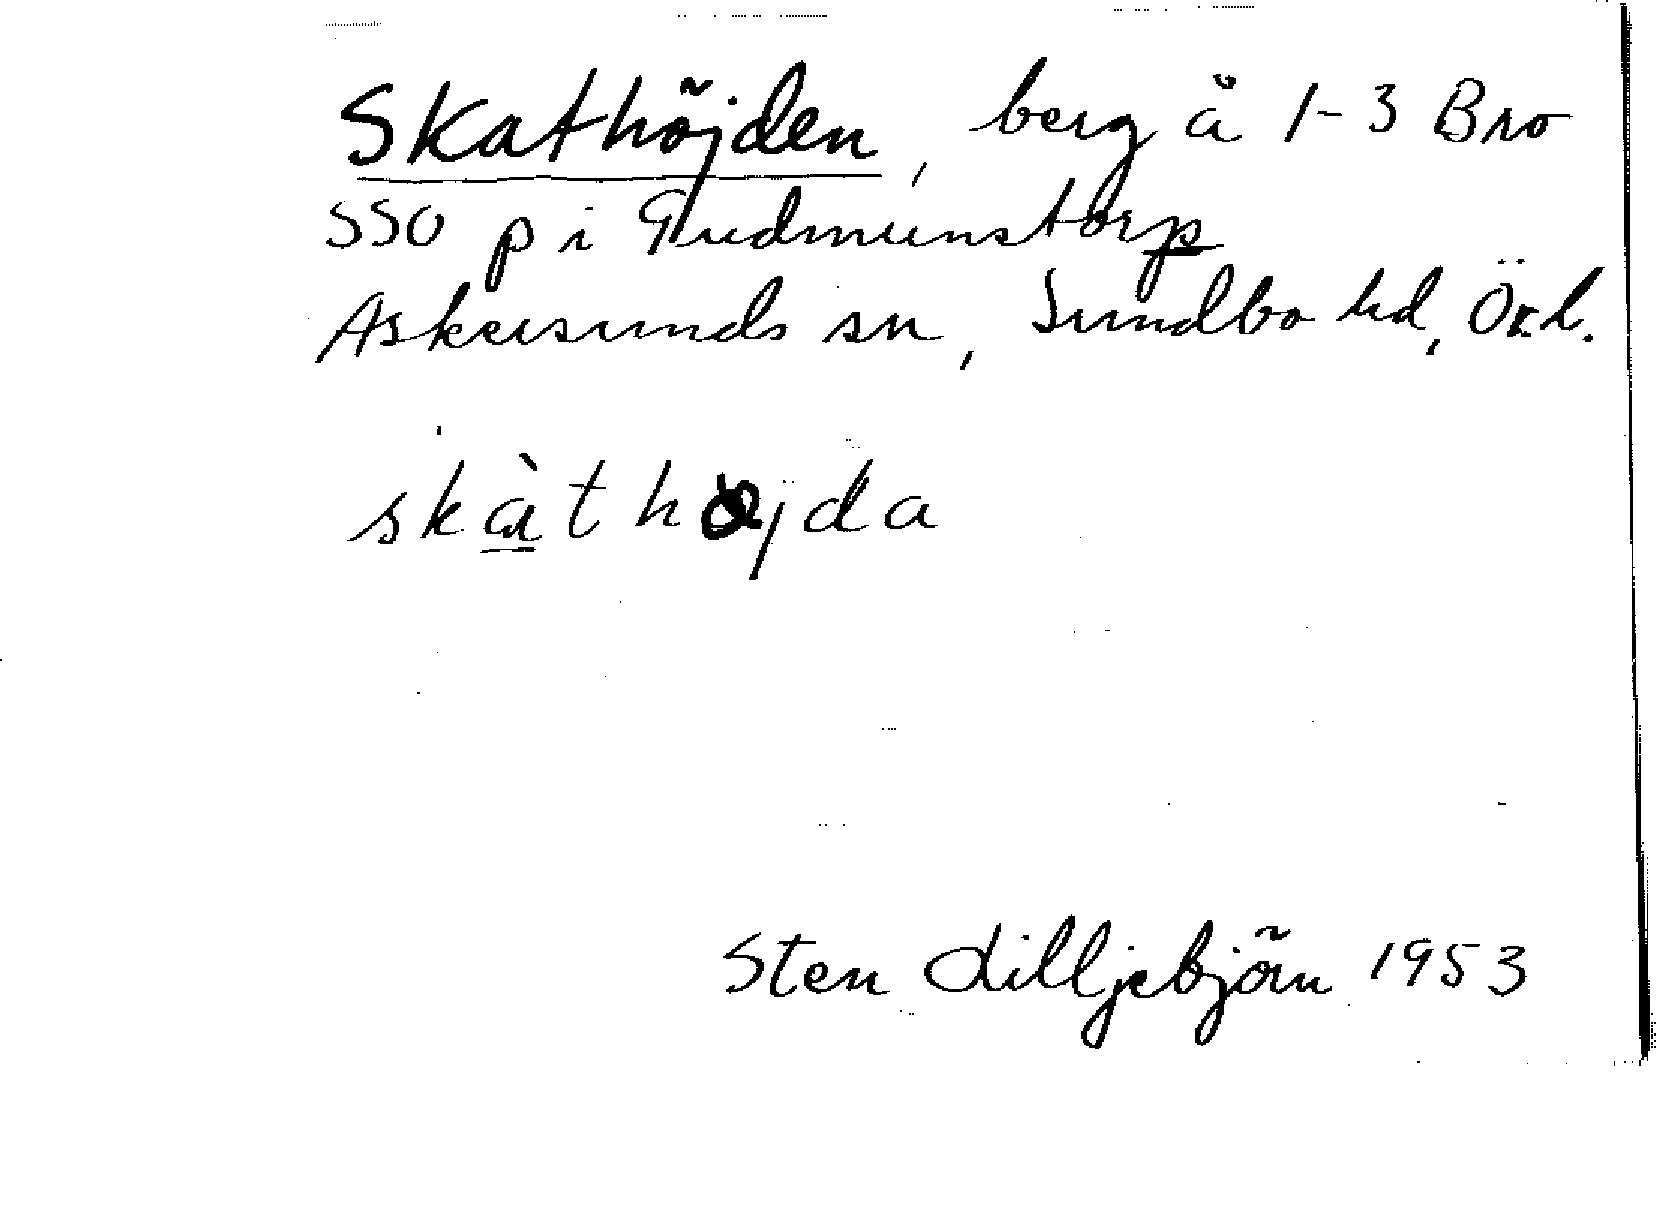 Skathöjden, berg å 1-3 Bro
SSO p i Gudmunstorp
Askersunds sn, Sundbo hd, Ökl.
skàthøjda
Sten Lilljebjörn 1953